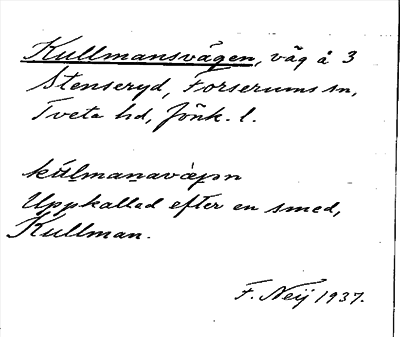 Kullmansvägen, väg å 3
Stenseryd, Forserums sn,
Tveta hd, Jönk. l.
kúlmanavä̀gən
Uppkallad efter en smed,
Kullman.
F. Neij 1937.